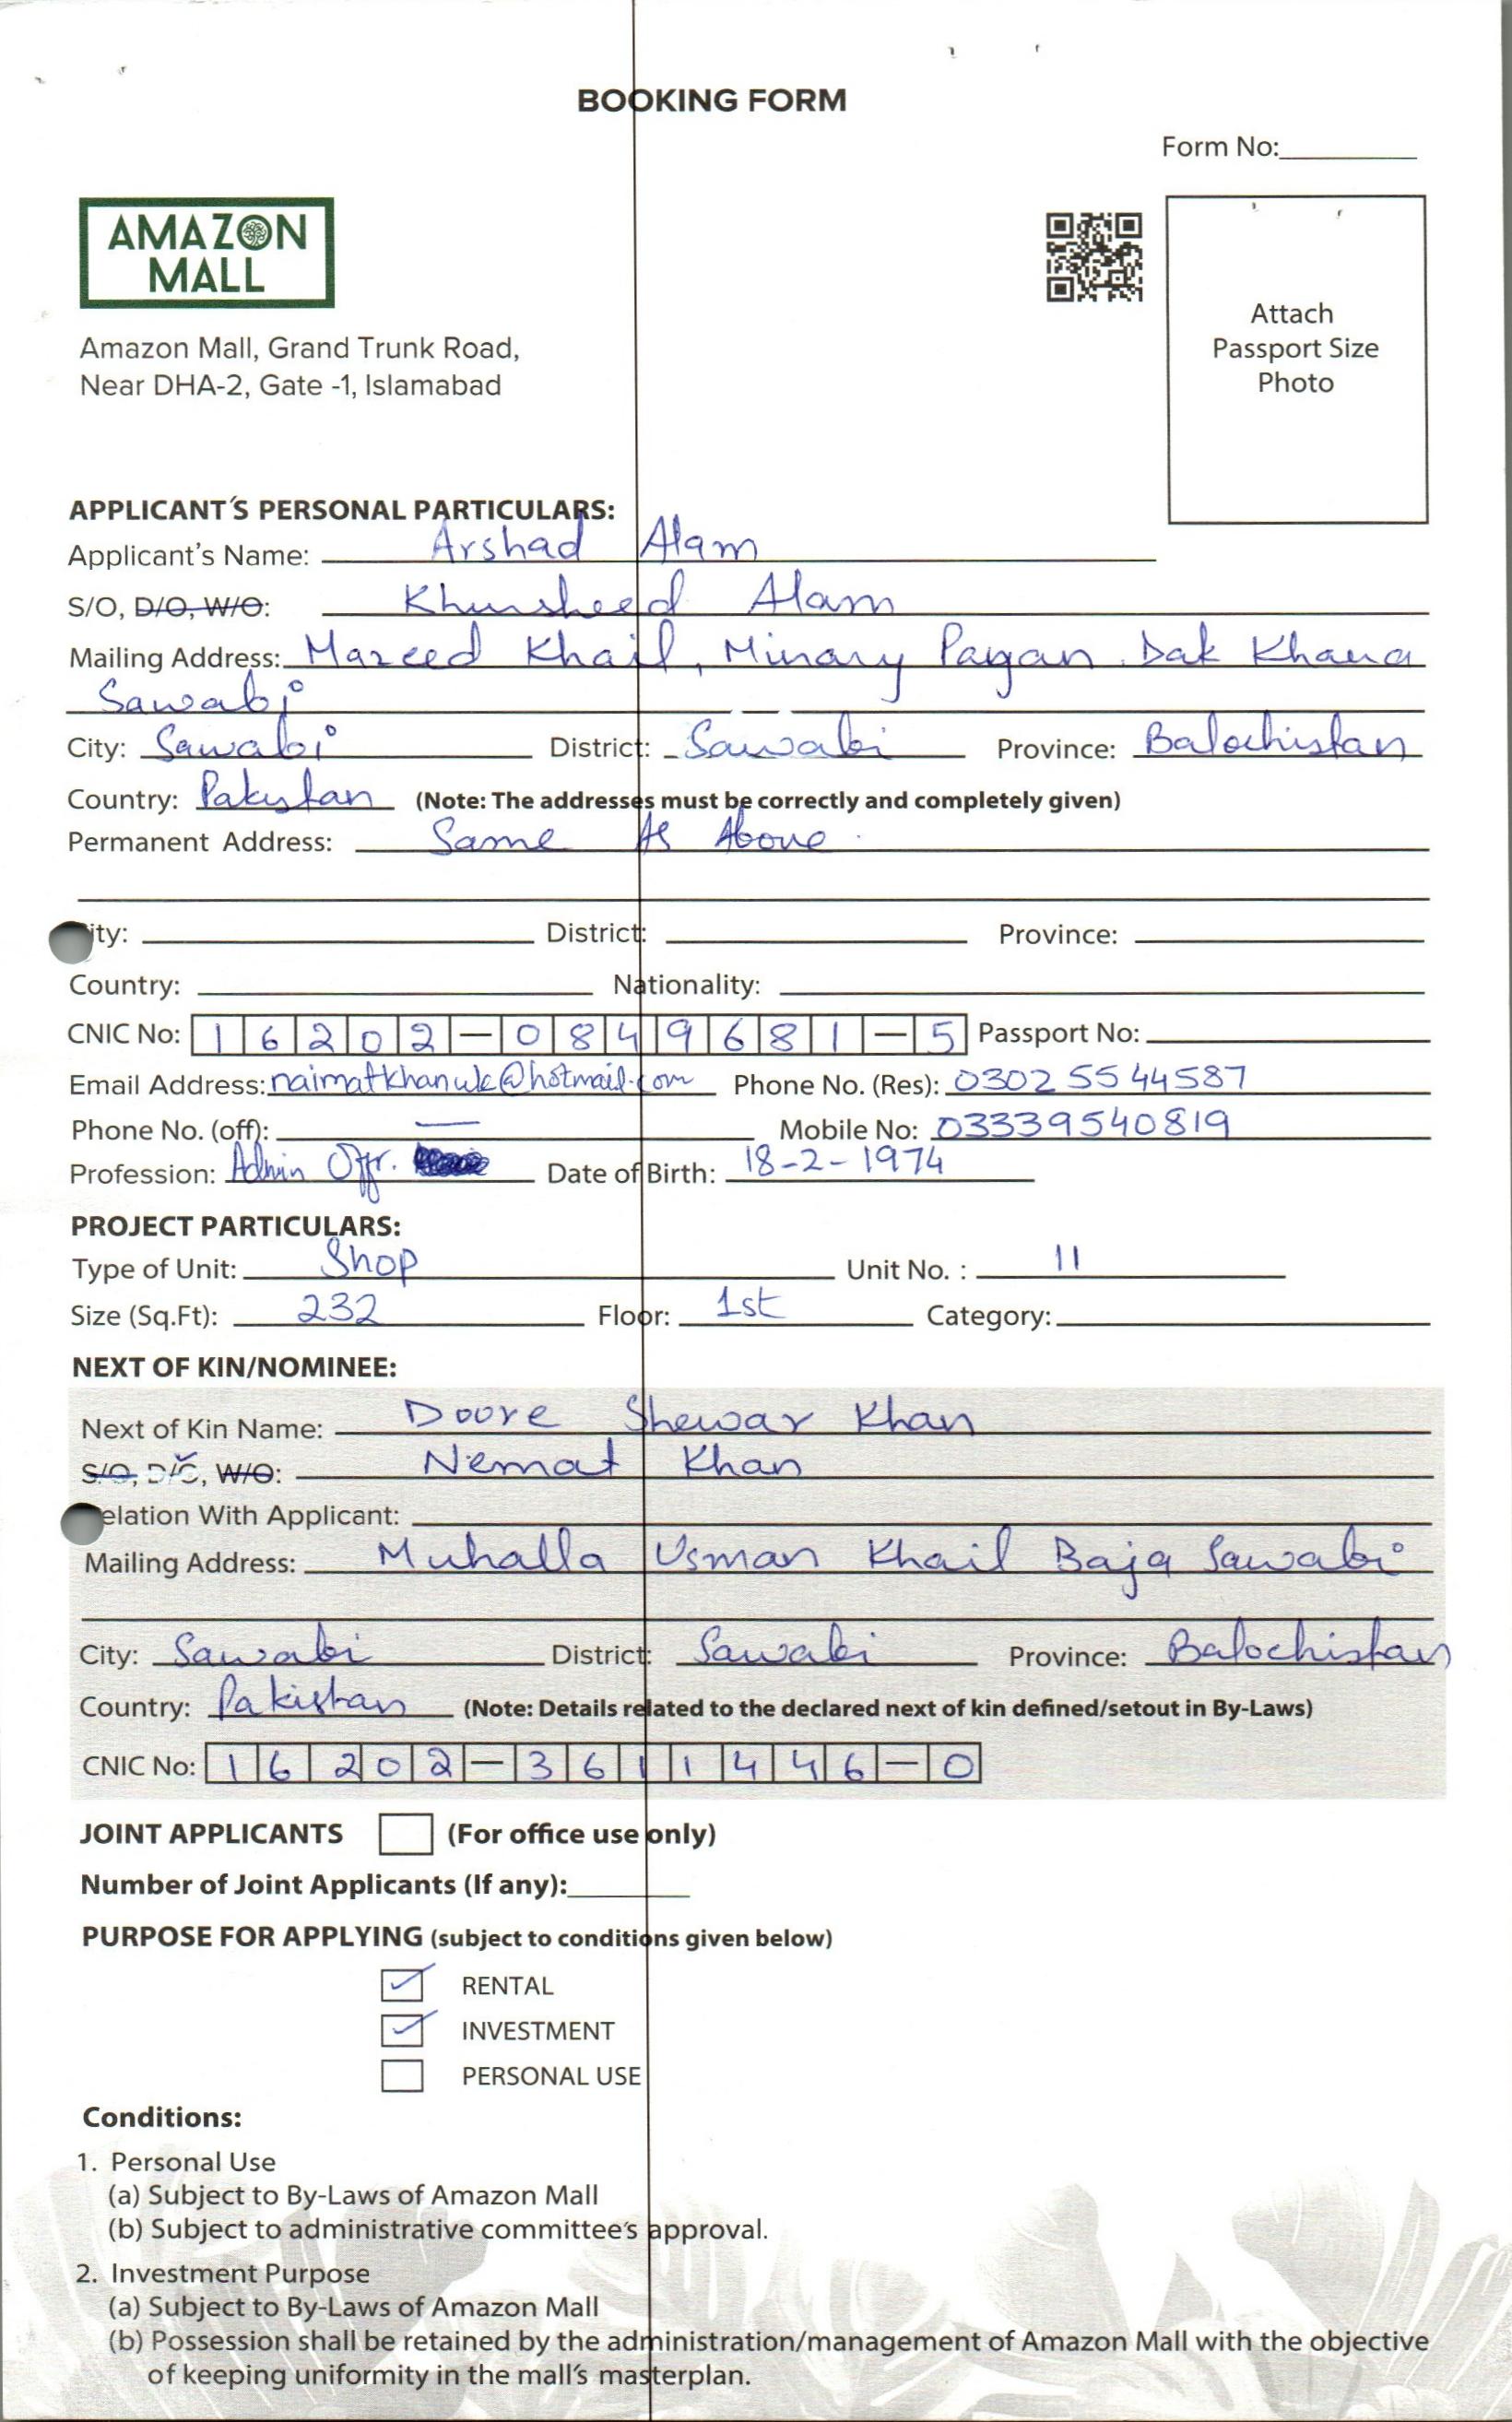 BOOKING FORM
Form No:
AMAZON
MALL
Amazon Mall, Grand Trunk Road,
Near DHA-2, Gate -1, Islamabad
Attach
Passport Size
Photo
APPLICANT'S PERSONAL PARTICULARS:
Applicant's Name: Arshad Alam
S/O, D/O, W/O: Khursheed Alam
Mailing Address: Mazeed Khail, Minary Payan Dak Khana
Sawabi
City: Sawabi District: Sawabi Province: Balochistan
Country: Pakistan (Note: The addresses must be correctly and completely given)
Permanent Address: Same As Above
City: District: Province:
Country: Nationality:
CNIC No: 16202-0849681-5 Passport No:
Email Address: naimatkhanuk@hotmail.com Phone No. (Res): 03025544587
Phone No. (off): — Mobile No: 03339540819
Profession: Admin Offr. Date of Birth: 18-2-1974
PROJECT PARTICULARS:
Type of Unit: Shop Unit No. : 11
Size (Sq.Ft): 232 Floor: 1st Category:
NEXT OF KIN/NOMINEE:
Next of Kin Name: Doore Shewar Khan
S/O, D/O, W/O: Nemat Khan
Relation With Applicant:
Mailing Address: Muhalla Usman Khail Baja Sawabi
City: Sawabi District: Sawabi Province: Balochistan
Country: Pakistan (Note: Details related to the declared next of kin defined/setout in By-Laws)
CNIC No: 16202-3611446-0
JOINT APPLICANTS (For office use only)
Number of Joint Applicants (If any):
PURPOSE FOR APPLYING (subject to conditions given below)
RENTAL
INVESTMENT
PERSONAL USE
Conditions:
1. Personal Use
(a) Subject to By-Laws of Amazon Mall
(b) Subject to administrative committee's approval.
2. Investment Purpose
(a) Subject to By-Laws of Amazon Mall
(b) Possession shall be retained by the administration/management of Amazon Mall with the objective
of keeping uniformity in the mall's masterplan.